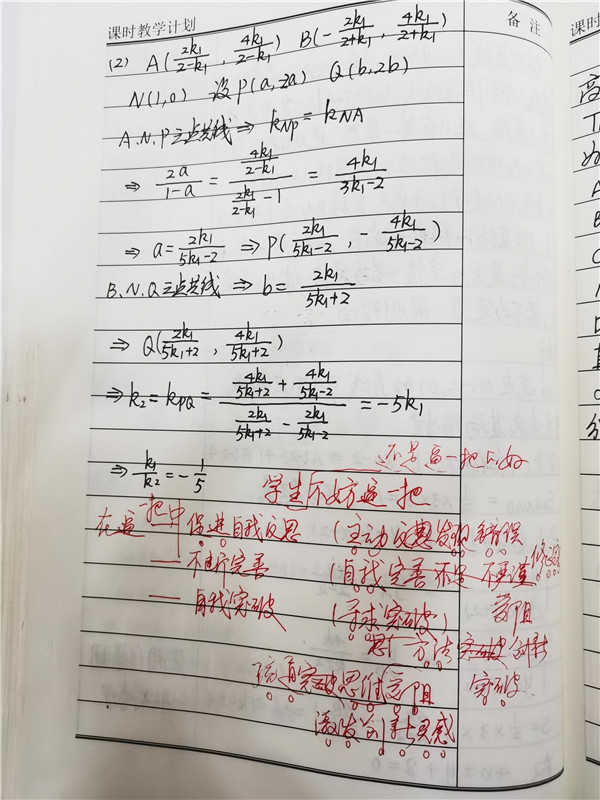 课时教学计划
备 注
(2) A(2k₁/(2-k₁), 4k₁/(2-k₁)) B(-2k₁/(2+k₁), 4k₁/(2+k₁))
N(1,0) 设P(a,2a) Q(b,2b)
A.N.P三点共线⇒ k_NP = k_NA
⇒ 2a/(1-a) = (4k₁/(2-k₁))/(2k₁/(2-k₁) - 1) = 4k₁/(3k₁-2)
⇒ a = 2k₁/(5k₁-2) ⇒ P(2k₁/(5k₁-2), -4k₁/(5k₁-2))
B.N.Q三点共线 ⇒ b = 2k₁/(5k₁+2)
⇒ Q(2k₁/(5k₁+2), 4k₁/(5k₁+2))
⇒ k₂ = k_PQ = (4k₁/(5k₁+2) + 4k₁/(5k₁-2))/(2k₁/(5k₁+2) - 2k₁/(5k₁-2)) = -5k₁
⇒ k₁/k₂ = -1/5
还是逼一把的好
学生不妨逼一把
在逼一把中 促进自我反思 (主动反思发现 错误
— 不断完善 (自我完善 修正
— 自我突破 (寻求突破) 受阻
方法突破 创新
突破思维受阻 突破
激发 灵感